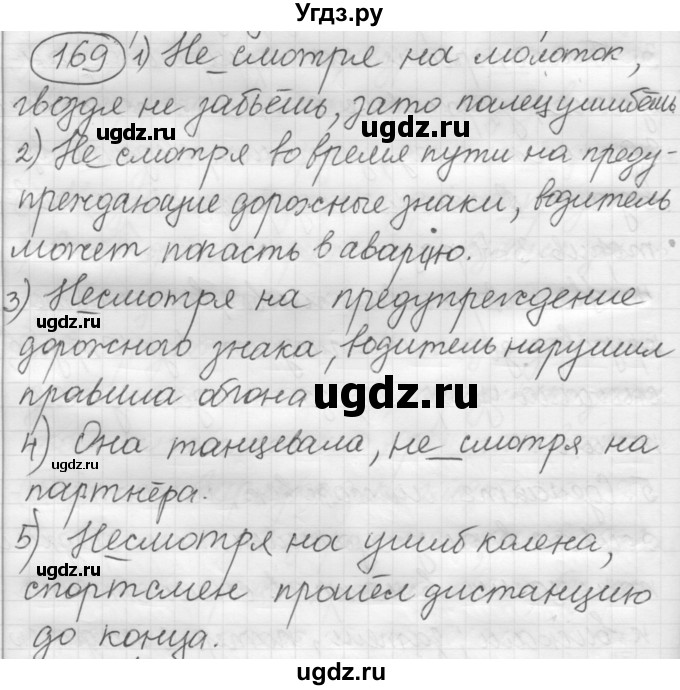 Угдз.ру
169 1) Не смотря на молоток,
гвоздя не забьёшь, зато палец ушибёшь
ugdz.ru ugdz.ru
2) Не смотря во время пути на преду-
преждающие дорожные знаки, водитель
может попасть в аварию.
3) Несмотря на предупреждение
ugdz.ru
дорожного знака, водитель нарушил
правила обгона ugdz.ru
4) Она танцевала, не смотря на
ugdz.ru
партнёра.
5) Несмотря на ушиб колена,
ugdz.ru
спортсмен прошёл дистанцию
до конца.
ugdz.ru
ugdz.ru